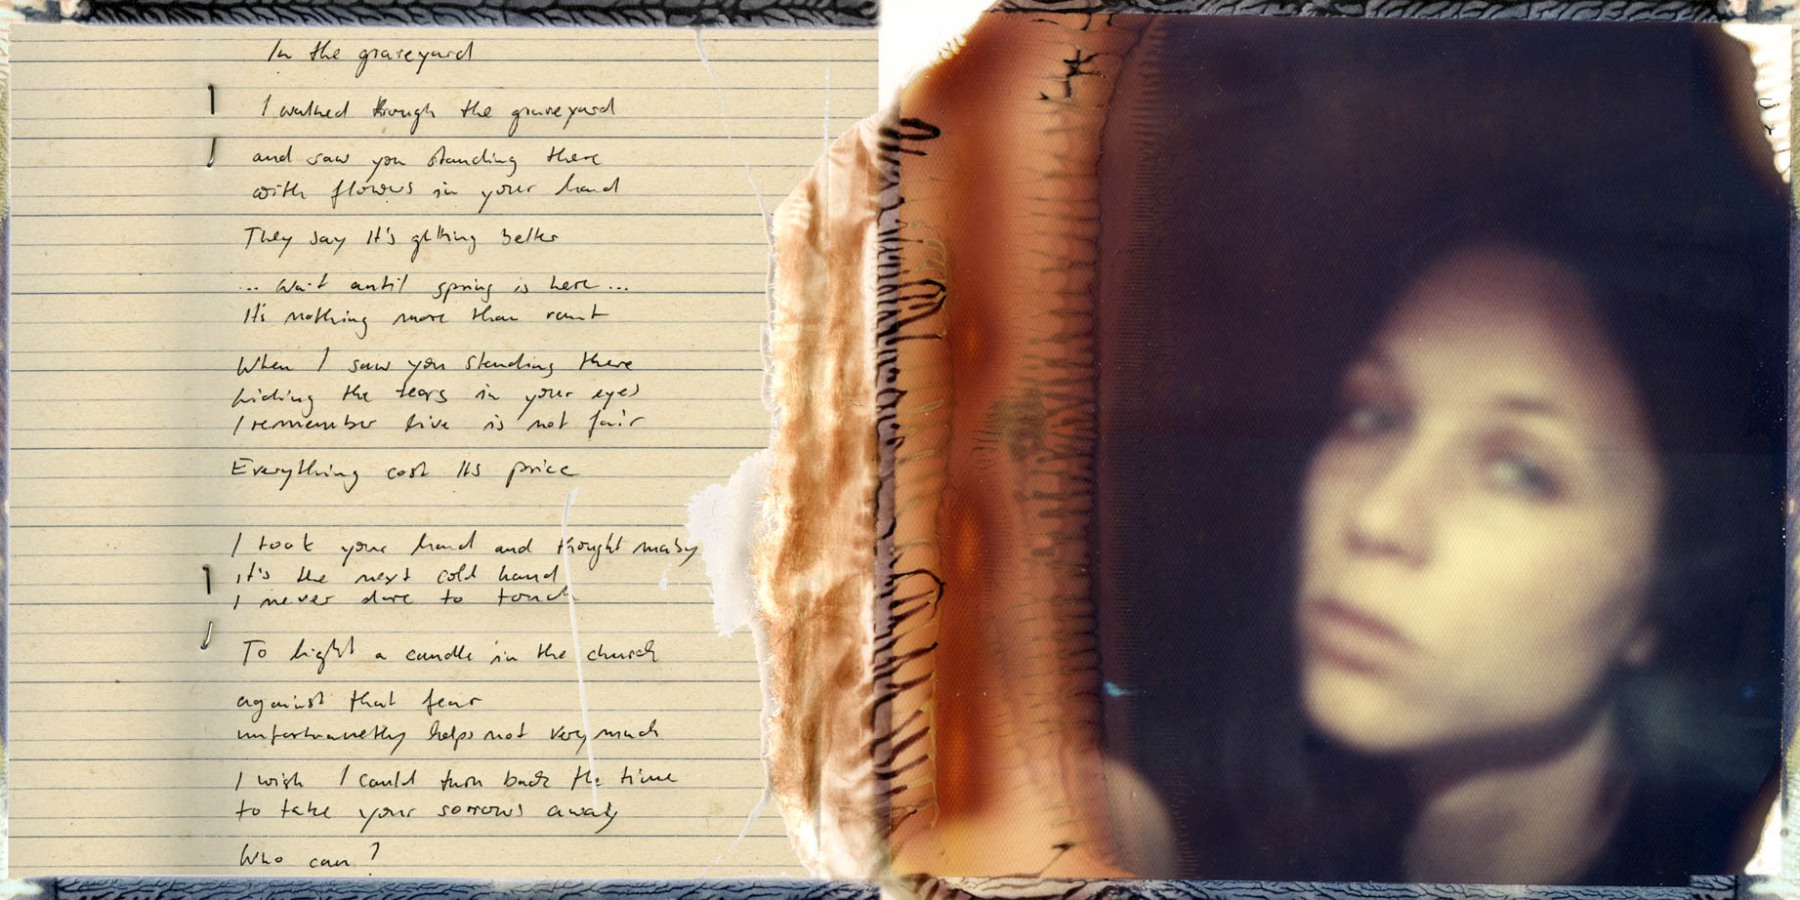 In the graveyard
I walked through the graveyard
and saw you standing there
with flowers in your hand
They say It's getting better
... Wait until spring is here ...
It's nothing more than
When I saw you standing there
hiding the tears in your eyes
I remember live is not fair
Everything cost its price
I took your hand and thought maby
it's the next cold hand
I never dare to touch
To light a candle in the church
against that fear
unfortunnetly helps not very much
I wish I could turn back the time
to take your sorrows away
Who can?